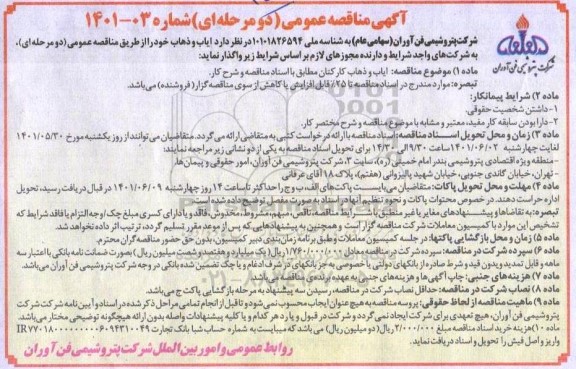 آگهی مناقصه عمومی (دو مرحله ای) شماره ۰۳-۱۴۰۱
شرکت پتروشیمی فن آوران (سهامی عام) به شناسه ملی ۱۰۱۰۱۸۲۶۵۹۴ در نظر دارد ایاب و ذهاب خود را از طریق مناقصه عمومی (دو مرحله ای)،
به شرکت های واجد شرایط و دارنده مجوزهای لازم بر اساس شرایط زیر واگذار نماید:
شرکت پتروشیمی فن آوران
ماده ۱) موضوع مناقصه: ایاب و ذهاب کارکنان مطابق با اسناد مناقصه و شرح کار.
تبصره: موارد مندرج در اسناد مناقصه تا ۲۵٪ قابل افزایش یا کاهش از سوی مناقصه گزار (فروشنده) می باشد.
ماده ۲) شرایط پیمانکار:
۱- داشتن شخصیت حقوقی.
۲- دارا بودن سابقه کار مفید، معتبر و مشابه با موضوع مناقصه و شرح مختصر کار.
ماده ۳) زمان و محل تحویل اسناد مناقصه: اسناد مناقصه با ارائه درخواست کتبی به متقاضی ارائه می گردد. متقاضیان می توانند از روز یکشنبه مورخ ۱۴۰۱/۰۵/۳۰
لغایت چهارشنبه ۱۴۰۱/۰۶/۰۲ ساعت ۹/۳۰ الی ۱۴/۳۰ برای تحویل اسناد مناقصه به یکی از دو نشانی زیر مراجعه نمایند:
- منطقه ویژه اقتصادی پتروشیمی بندر امام خمینی (ره)، سایت ۲، شرکت پتروشیمی فن آوران، امور حقوقی و پیمان ها.
- تهران، خیابان گاندی جنوبی، خیابان شهید پالیزوانی (هفتم)، پلاک ۱۸ آقای عرفانی
ماده ۴) مهلت و محل تحویل پاکات: متقاضیان می بایست پاکت های الف، ب و ج را حداکثر تا ساعت ۱۴ روز چهارشنبه ۱۴۰۱/۰۶/۰۹ در قبال دریافت رسید، تحویل
اداره حراست دهند. در خصوص محتوای پاکات و نحوه تنظیم آنها در اسناد به صورت مفصل توضیح داده شده است.
تبصره: به تقاضاها و پیشنهادهای مغایر یا غیر منطبق با شرایط مناقصه، ناقص، مبهم، مشروط، مخدوش، فاقد و یا دارای کسری مبلغ چک / وجه التزام یا فاقد شرایط که
در تضارب با تصویب کمیسیون معاملات شرکت مناقصه گزار است و همچنین به پیشنهادهایی که پس از موعد مقرر تسلیم گردد، ترتیب اثر داده نخواهد شد.
ماده ۵) زمان و محل بازگشایی پاکتها: در جلسه کمیسیون معاملات و طبق برنامه زمان بندی دبیر کمیسیون، بدون حق حضور مناقصه گران محترم.
ماده ۶) سپرده شرکت در مناقصه: سپرده شرکت در مناقصه معادل ۱/۷۶۰/۰۰۰/۰۰۰ ریال (یک میلیارد و هفتصد و شصت میلیون ریال) بصورت ضمانت نامه بانکی با اعتبار سه
ماهه و قابل تمدید و بدون قید و شرط صادره از بانکهای دولتی یا خصوصی به جز بانکهای در شرف ادغام و یا چک تضمین شده بانکی در وجه شرکت پتروشیمی فن آوران می باشد.
ماده ۷) هزینه های جنبی: چاپ آگهی ها و هزینه های جنبی به عهده برنده مناقصه می باشد.
ماده ۸) نصاب شرکت در مناقصه: حداقل نصاب شرکت در مناقصه، رسیدن سه پیشنهاد به مرحله بازگشایی پاکت ج می باشد.
ماده ۹) ماهیت مناقصه از لحاظ حقوقی: پروسه مناقصه به هیچ عنوان ایجاب محسوب نمی شود و تا قبل از انجام تمامی مراحل ذکر شده در اسناد و آیین نامه شرکت شرکت
پتروشیمی فن آوران، هیچ تعهدی برای شرکت ایجاد نمی گردد و شرکت در قبول و یا رد هر کدام و یا کلیه پیشنهادات واصله بدون ارائه هیچگونه توضیحی مختار می باشد.
ماده ۱۰) هزینه خرید اسناد مناقصه مبلغ ۲/۰۰۰/۰۰۰ ریال (دو میلیون ریال) می باشد که می بایست به شماره حساب شبا بانک تجارت IR۷۷۰۱۸۰۰۰۰۰۰۰۰۰۶۰۹۴۳۱۰۰۴۹
واریز و اصل فیش را تحویل و اسناد دریافت نماید.
روابط عمومی و امور بین الملل شرکت پتروشیمی فن آوران